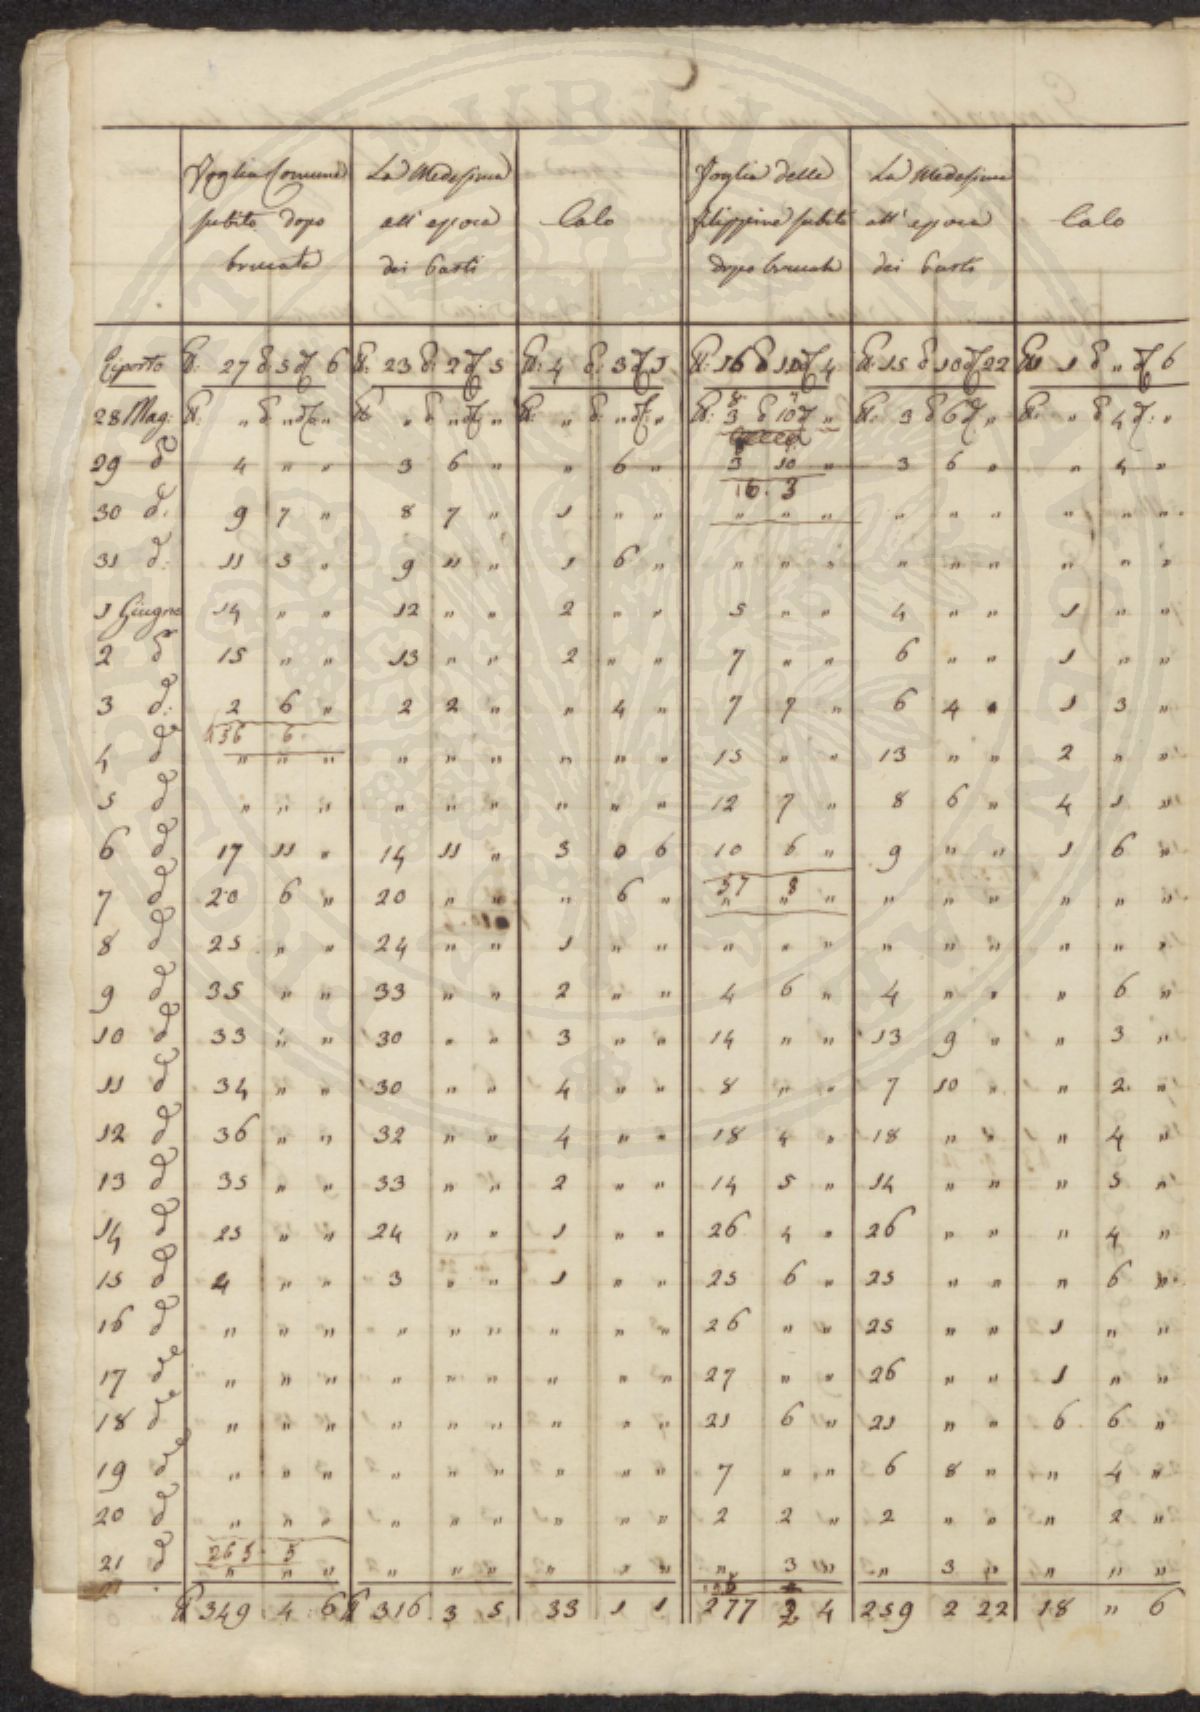 Foglia Comune La Medesima Foglia delle La Medesima
subito dopo all' epoca Calo filippine subito all' epoca Calo
brucata dei Pasti dopo brucata dei Pasti
Riporto 27 5 6 23 2 5 4 3 1 16 10 4 15 10 22 1 " 6
28 Mag: " " " " " " " " " 3 10 " 3 6 " " 4 "
29 d 4 " " 3 6 " " 6 " 3 10 " 3 6 " " 4 "
16 . 3
30 d: 9 7 " 8 7 " 1 " " " " " " " " " " "
31 d: 11 5 " 9 11 " 1 6 " " " " " " " " " "
1 Giugno 14 " " 12 " " 2 " " 5 " " 4 " " 1 " "
2 d 15 " " 13 " " 2 " " 7 " " 6 " " 1 " "
3 d: 2 6 " 2 2 " " 4 " 7 7 " 6 4 " 1 3 "
56 6
4 d " " " " " " " " " 15 " " 13 " " 2 " "
5 d " " " " " " " " " 12 7 " 8 6 " 4 1 "
6 d 17 11 " 14 11 " 3 0 6 10 6 " 9 " " 1 6 "
57 8
7 d 20 6 " 20 " " " 6 " " " " " " " " " "
8 d 25 " " 24 " " 1 " " " " " " " " " " "
9 d 35 " " 33 " " 2 " " 4 6 " 4 " " " 6 "
10 d 33 " " 30 " " 3 " " 14 " " 13 9 " " 3 "
11 d 34 " " 30 " " 4 " " 8 " " 7 10 " " 2 "
12 d 36 " " 32 " " 4 " " 18 4 " 18 " " " 4 "
13 d 35 " " 33 " " 2 " " 14 5 " 14 " " " 5 "
14 d 25 " " 24 " " 1 " " 26 4 " 26 " " " 4 "
15 d 4 " " 3 " " 1 " " 25 6 " 25 " " " 6 "
16 d " " " " " " " " " 26 " " 25 " " 1 " "
17 d " " " " " " " " " 27 " " 26 " " 1 " "
18 d " " " " " " " " " 21 6 " 21 " " 6 6 "
19 d " " " " " " " " " 7 " " 6 8 " " 4 "
20 d " " " " " " " " " 2 2 " 2 " " " 2 "
265 . 5
21 d " " " " " " " " " " 3 " " 3 " " " "
349 4 6 316 3 5 33 1 1 277 2 4 259 2 22 18 " 6